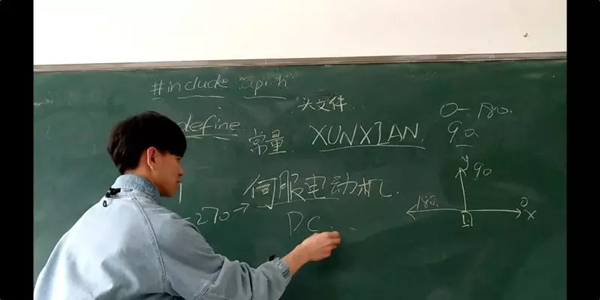 #include "upi.h"
头文件
0-180.
define 常量 XUNXIAN
90
y
90
伺服电动机.
-270→
180
0
x
DC